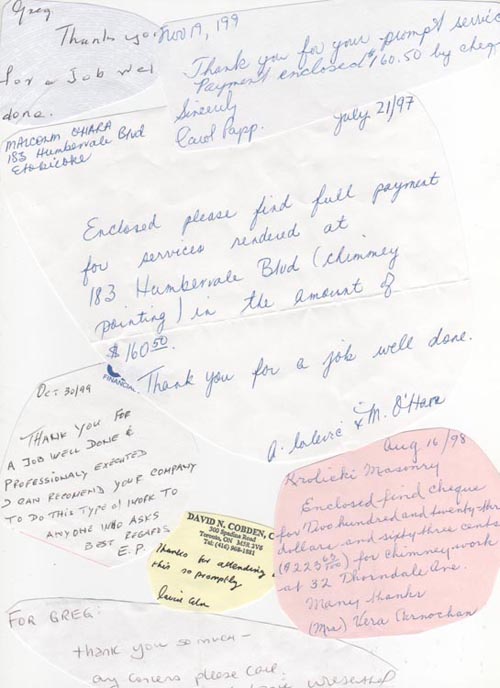 Greg
Thanks you
for a Job Wel
done.
Nov 19, 199
Thank you for your prompt servic
Payment enclosed $160.50 by cheq
Sincerely
Carol Papp.
July 21/97
MALCOLM O'HARA
183 Humbervale Blvd
Etobicoke
Enclosed please find full payment
for services rendered at
183 Humbervale Blvd (chimney
pointing) in the amount of
$160.50.
FINANCIAL
Thank you for a job well done.
& M. O'Hara
Oct 30/99
THANK YOU FOR
A JOB WELL DONE &
PROFESSIONALY EXECUTED
I CAN RECOMEND YOUR COMPANY
TO DO THIS TYPE OF WORK TO
ANYONE WHO ASKS
BEST REGARDS
E.P.
DAVID N. COBDEN, C
300 Spadina Road
Toronto, ON M5R 2V6
Tel: (416) 968-1881
Thanks for attending
this so promptly
Aug 16/98
Krolicki Masonry
Enclosed find cheque
for Two hundred and twenty-thr
dollars and sixty three cents
($223 63/100) for chimney work
at 32 Thorndale Ave.
Many thanks
(Mrs) Vera Carnochan
FOR GREG:
thank you so much -
any concerns please call.